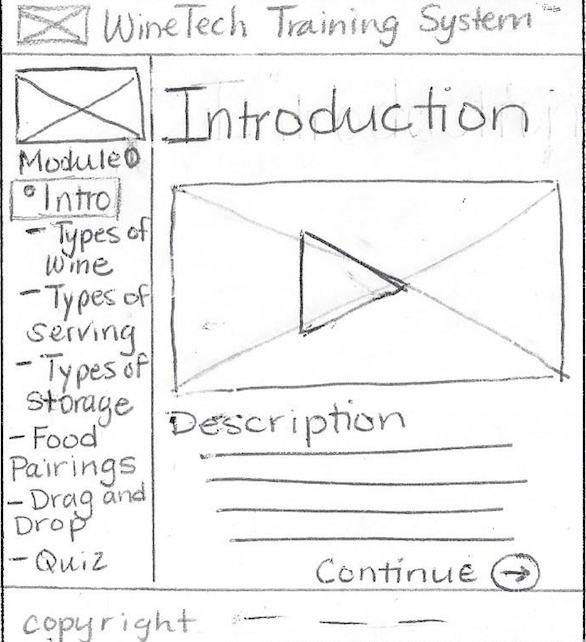 WineTech Training System
Introduction
Module 0
Intro
- Types of
Wine
- Types of
Serving
- Types of
Storage
- Food
Pairings
- Drag and
Drop
- Quiz
Description
Continue →
copyright